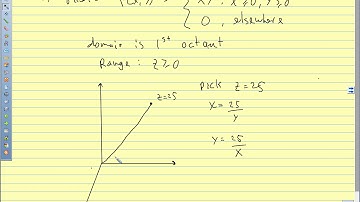 xy, x≥0, y≥0
0, elsewhere
domain is 1st octant
Range: z≥0
pick z=25
z=25
x = 25/y
y = 25/x